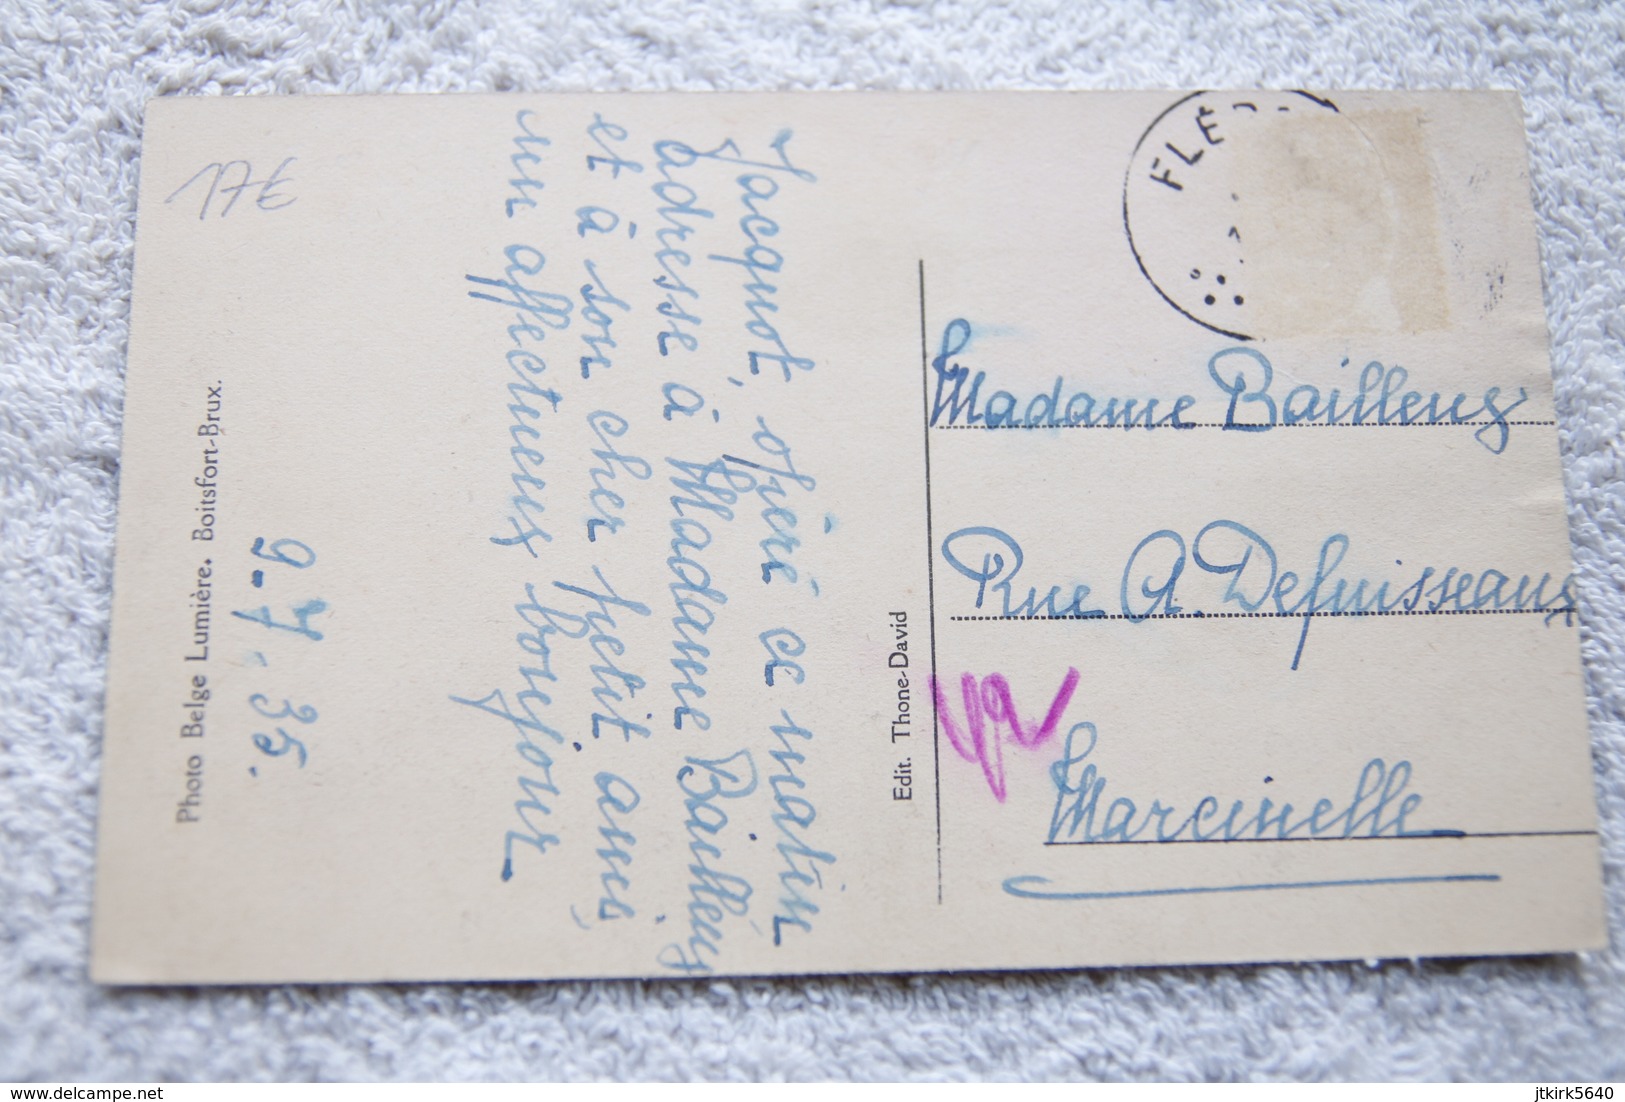 17€
Photo Belge Lumière. Boitsfort-Brux.
9-7.35.
Jacquot, opéré ce matin
adresse à Madame Bailleux
et à son cher petit ami,
un affectueux bonjour
Edit. Thone-David
FLE
Madame Bailleux
Rue A. Defuisseaux
Marcinelle
www.delcampe.net
jtkirk5640